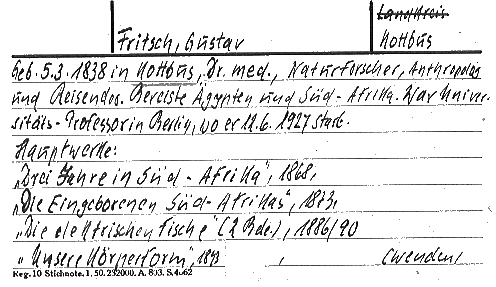 Landkreis
Fritsch, Gustav Kottbus
Geb. 5.3.1838 in Kottbus, Dr. med., Naturforscher, Anthropologe
und Reisender. Bereiste Ägypten und Süd-Afrika. War Univer-
sitäts-Professor in Berlin, wo er 12.6.1927 starb.
Hauptwerke:
„Drei Jahre in Süd-Afrika", 1868,
„Die Eingeborenen Süd-Afrikas", 1873,
„Die elektrischen Fische" (2 Bde.), 1886/90
„Unsere Körperform", 1893
Reg. 10 Stichnote. 1. 50. 232000. A. 803. S. 4.62